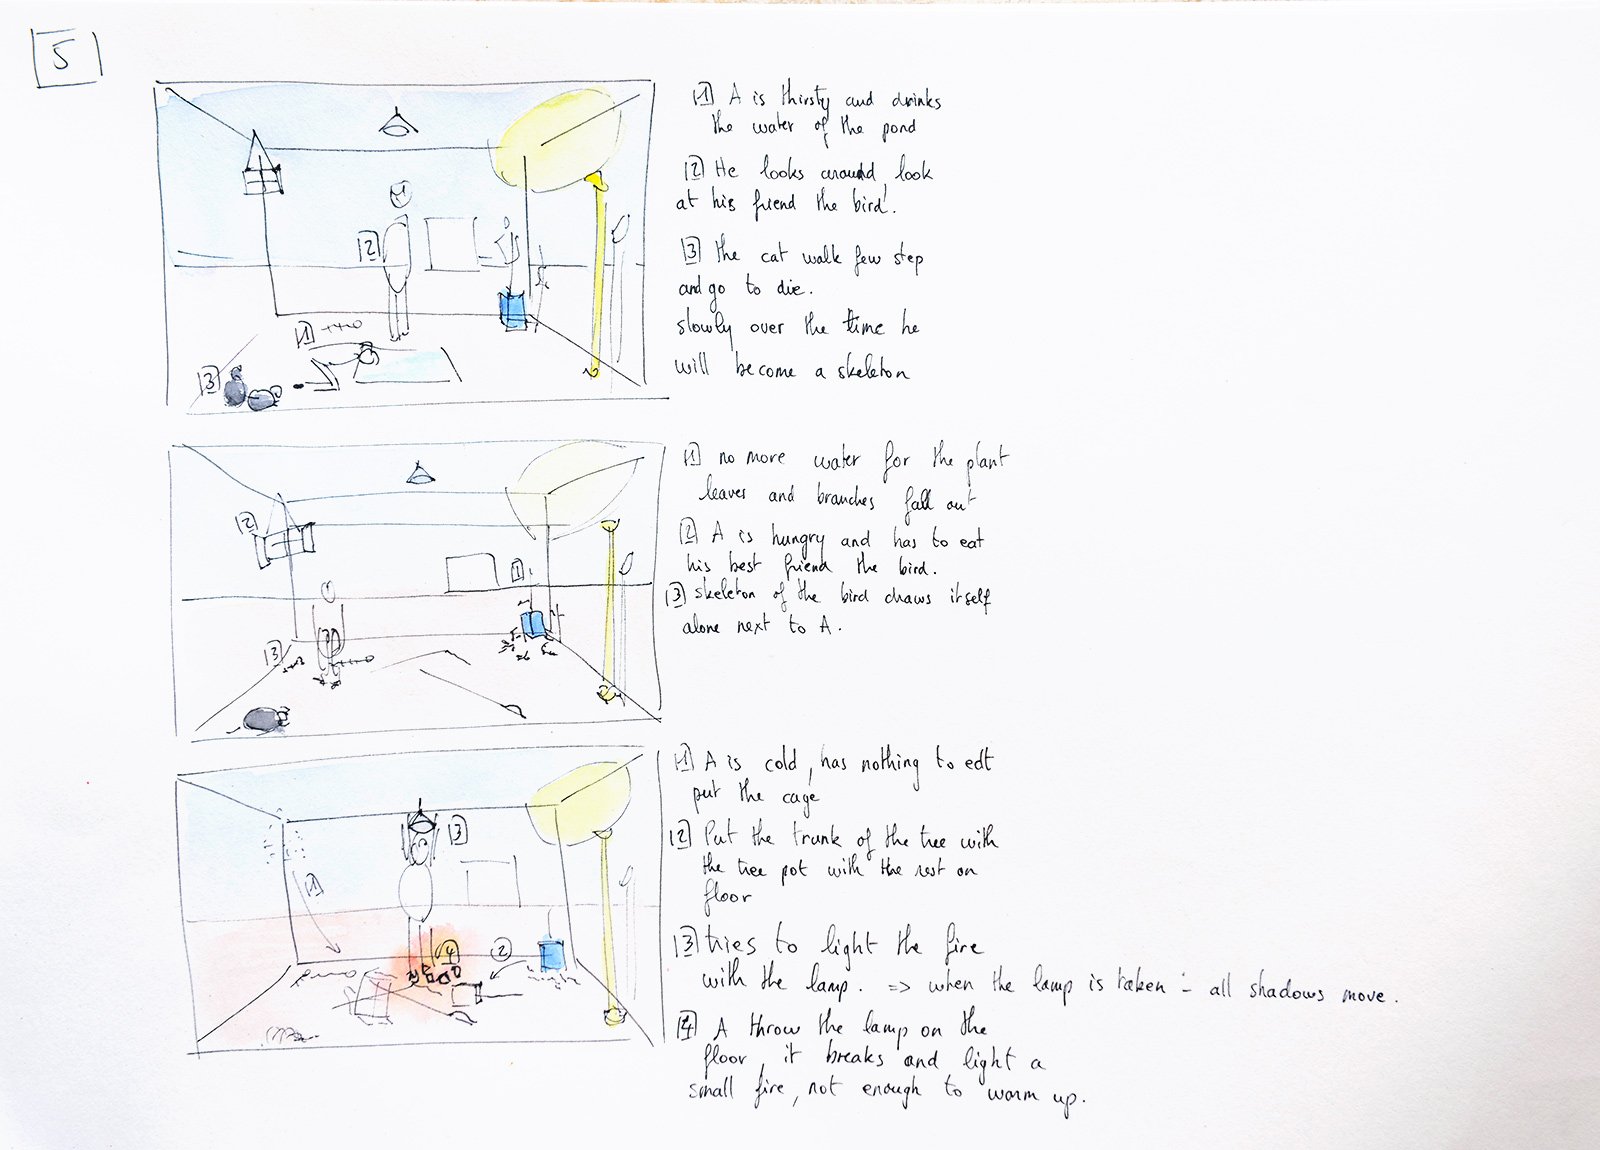 5
1 A is thirsty and drinks
the water of the pond
2 He looks around look
at his friend the bird.
3 the cat walk few step
and go to die.
slowly over the time he
will become a skeleton
2
1
3
1 no more water for the plant
leaves and branches fall out
2 A is hungry and has to eat
his best friend the bird.
3 skeleton of the bird draws itself
alone next to A.
2
1
3
1 A is cold, has nothing to edt
put the cage
2 Put the trunk of the tree with
the tree pot with the rest on
floor
3 tries to light the fire
with the lamp. => when the lamp is taken - all shadows move.
4 A throw the lamp on the
floor, it breaks and light a
small fire, not enough to warm up.
3
1
4
2